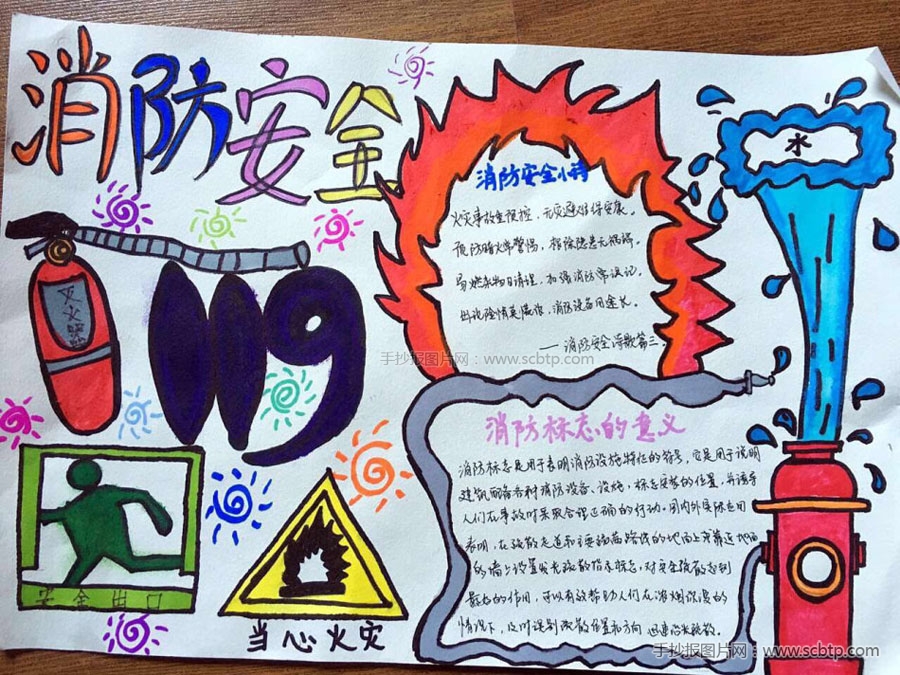 消防安全
水
消防安全小诗
火灾事故重预控，无灾避难保安康。
预防暗火常警惕，排除隐患无祸端。
易燃杂物日清理，加强消防常识记。
出现险情莫慌张，消防设备用途长。
——消防安全诗歌篇三。
灭火器
119
手抄报图片网：www.scbtp.com
消防标志的意义
消防标志是用于表明消防设施特征的符号，它是用于说明
建筑配备各种消防设备、设施，标志安装的位置，并诱导
人们在事故时采取合理正确的行动。国内外实际应用
表明，在疏散走道和主要疏散路线的地面上或靠近地面
的墙上设置发光疏散指示标志，对安全疏散起到
最好的作用，可以有效帮助人们在浓烟弥漫的
情况下，及时识别疏散位置和方向，迅速沿
安全出口
当心火灾
手抄报图片网：www.scbtp.com